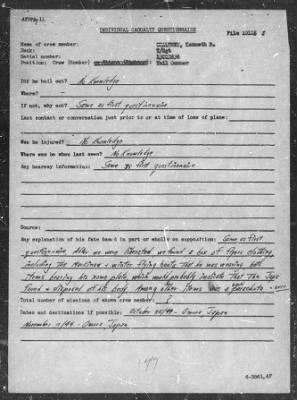 AFPPA-11
INDIVIDUAL CASUALTY QUESTIONNAIRE
File 10115
Name of crew member: Kenneth
Rank: T/Sgt
Serial number:
Position: Crew (Bomber) Tail Gunner
Did he bail out? No Knowledge
Where?
If not, why not? Same as first questionnaire
Last contact or conversation just prior to or at time of loss of plane:
Was he injured? No Knowledge
Where was he when last seen? No Knowledge
Any hearsay information: Same as first questionnaire
Source:
Any explanation of his fate based in part or wholly on supposition: Same as first
questionnaire After we were liberated we found a box of flyers clothing
including two and winter flying boots that he was wearing both
items bearing his name plate which would probably indicate that the Japs
found & disposed of his body. Among other items was a parachute - over
Total number of missions of above crew member: ?
Dates and destinations if possible: October 25/44 - Omura Japan
November 11/44 - Omura Japan
6-3861,AF